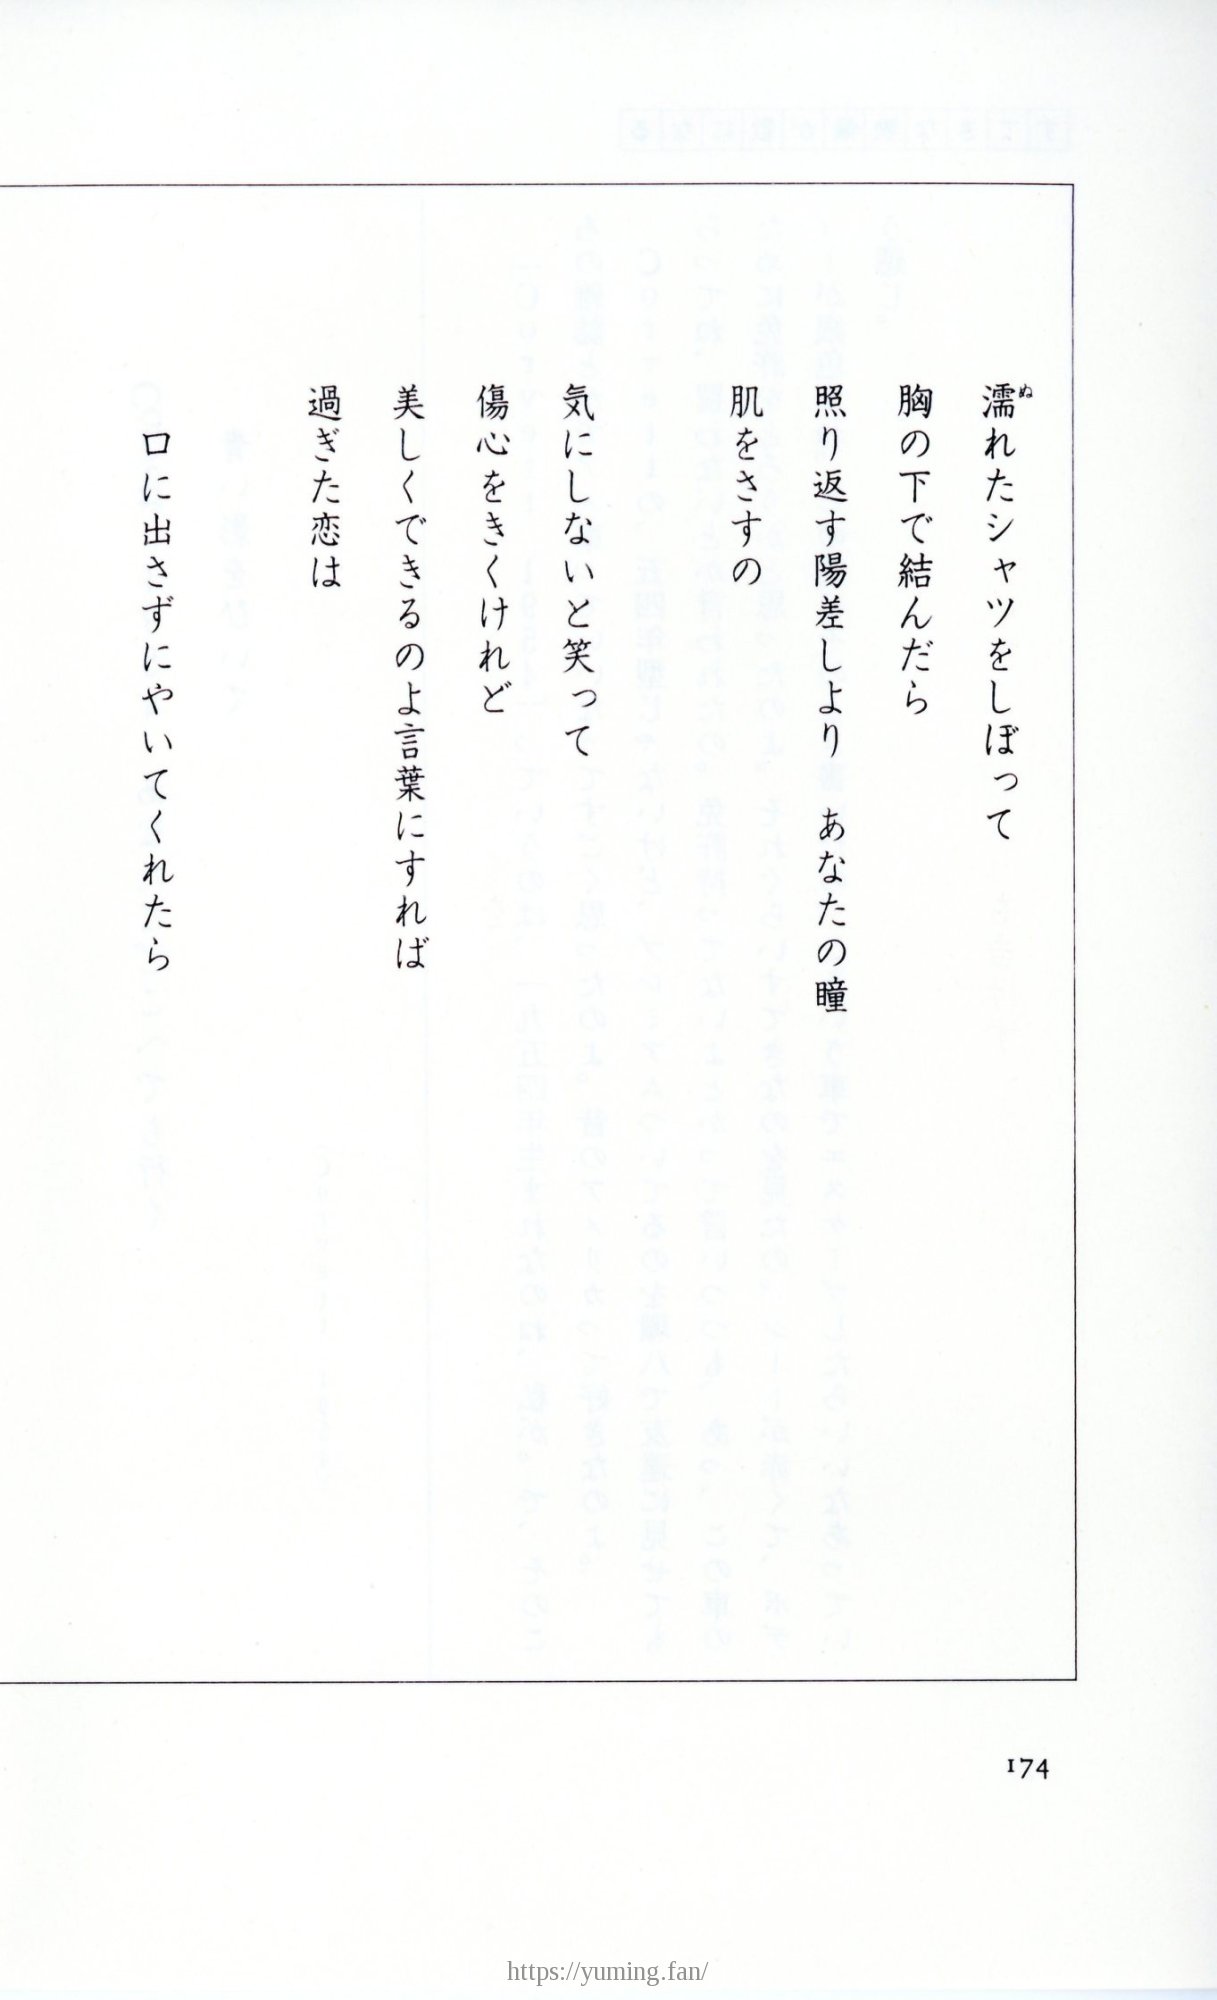 濡れたシャツをしぼって
胸の下で結んだら
照り返す陽差しより あなたの瞳
肌をさすの
気にしないと笑って
傷心をきくけれど
美しくできるのよ言葉にすれば
過ぎた恋は
口に出さずにやいてくれたら
174
https://yuming.fan/